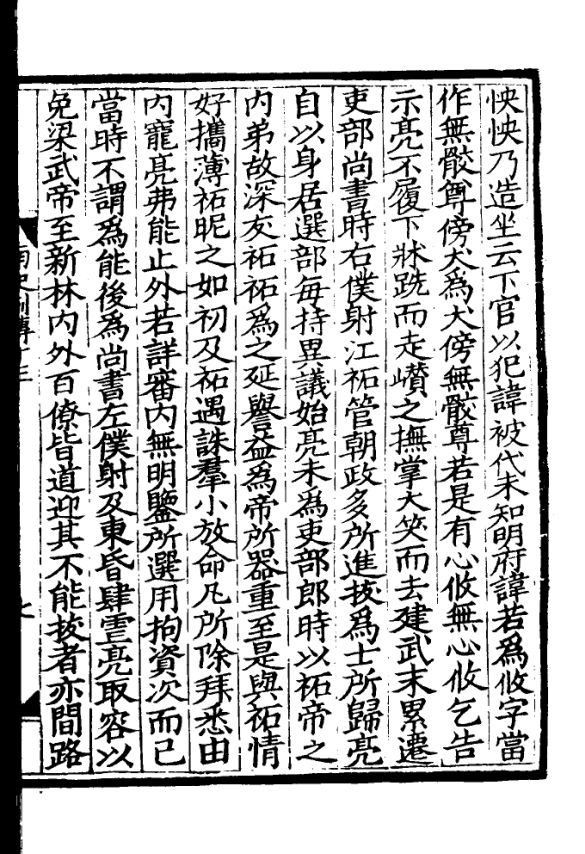 怏怏乃造坐云下官以犯諱被代未知明府諱若爲攸字當
作無骹尊傍犬爲犬傍無骹尊若是有心攸無心攸乞告
示亮不履下牀跣而走巑之撫掌大笑而去建武末累遷
吏部尚書時右僕射江祏管朝政多所進拔爲士所歸亮
自以身居選部每持異議始亮未爲吏部郎時以祏帝之
内弟故深友祏祏爲之延譽益爲帝所器重至是與祏情
好攜薄祏昵之如初及祏遇誅羣小放命凡所除拜悉由
内寵亮弗能止外若詳審内無明鑒所選用拘資次而已
當時不謂爲能後爲尚書左僕射及東昏肆虐亮取容以
免梁武帝至新林内外百僚皆道迎其不能拔者亦間路
南史列傳十三